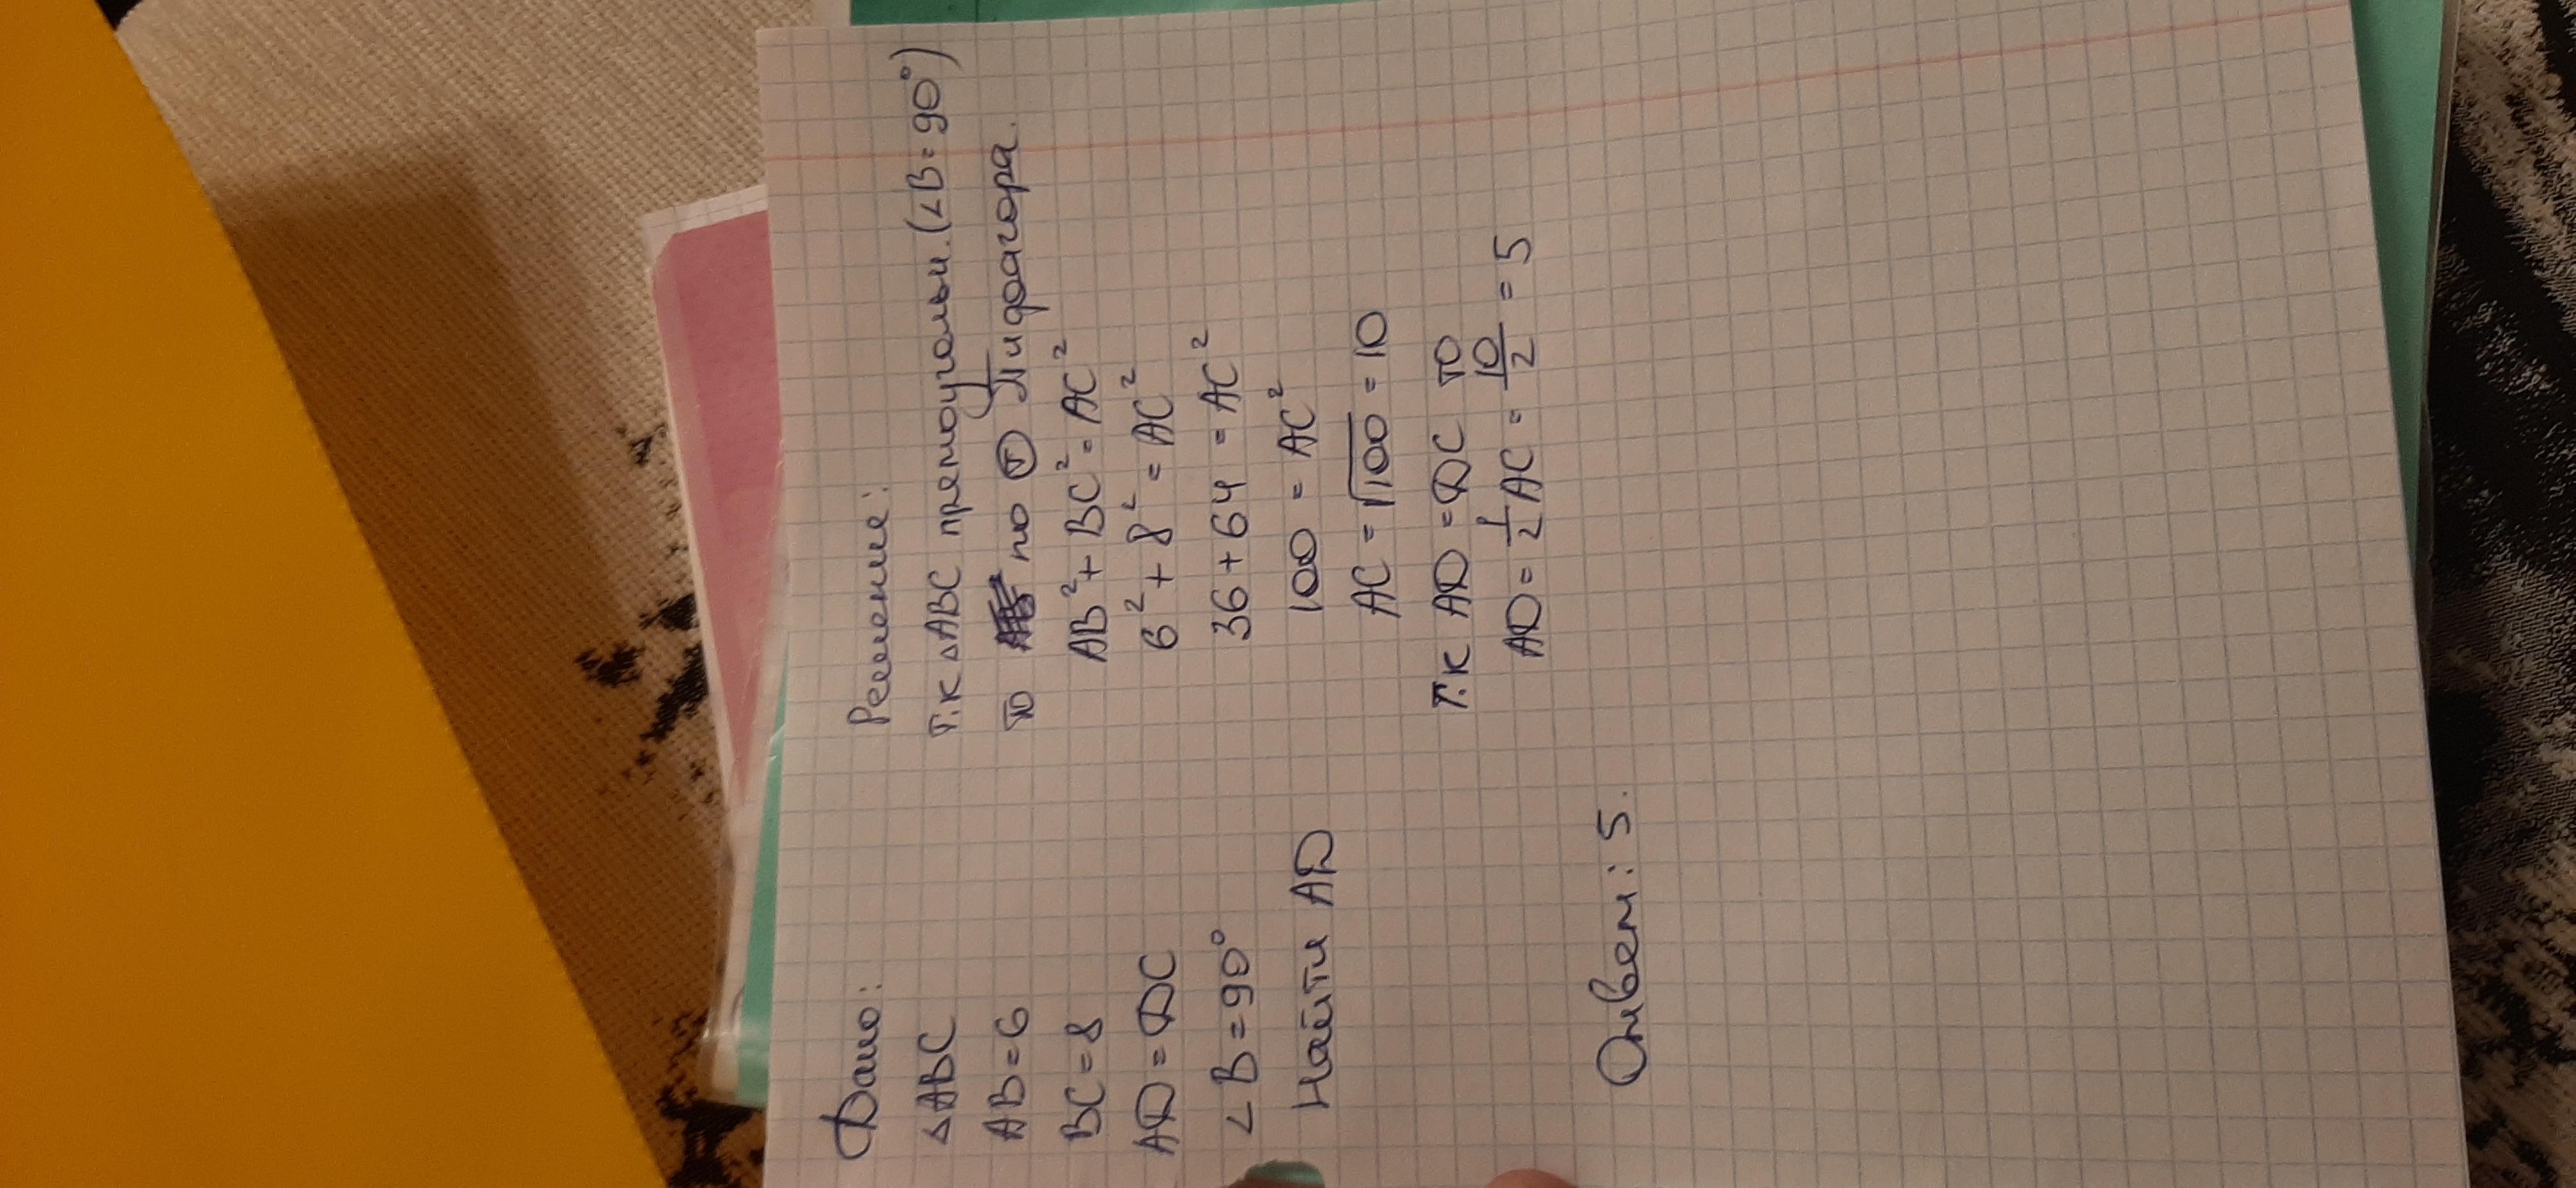 Дано:
△ABC
AB=6
BC=8
AD=DC
∠B=90°
Найти AD
Решение:
Т.к △ABC премоугольн.(∠B=90°)
то по Ⓣ Пифагора.
AB²+BC²=AC²
6²+8²=AC²
36+64=AC²
100=AC²
AC=√100=10
Т.к AD=DC то
AD=1/2AC=10/2=5
Ответ: 5.